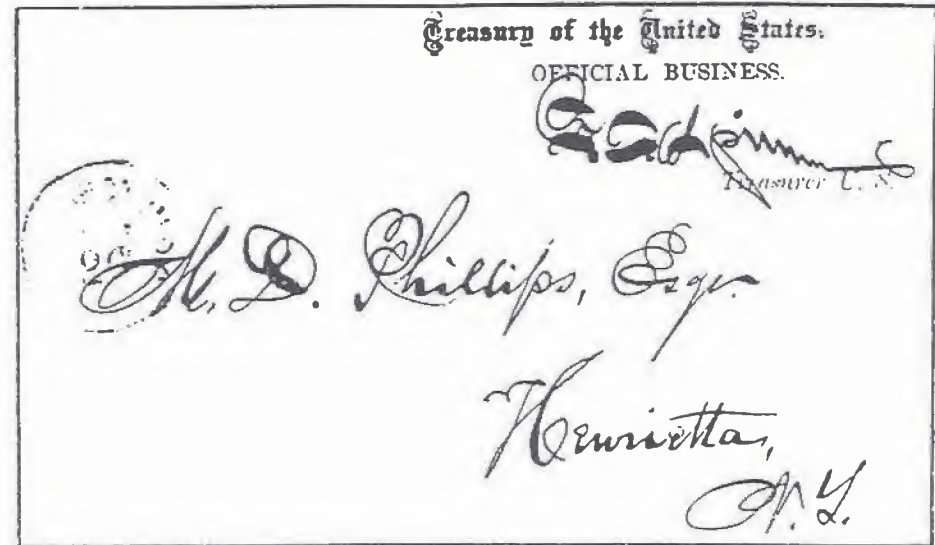 Treasury of the United States.
OFFICIAL BUSINESS.
Treasurer U. S.
M. D. Phillips, Esqr.
Henrietta,
N. Y.